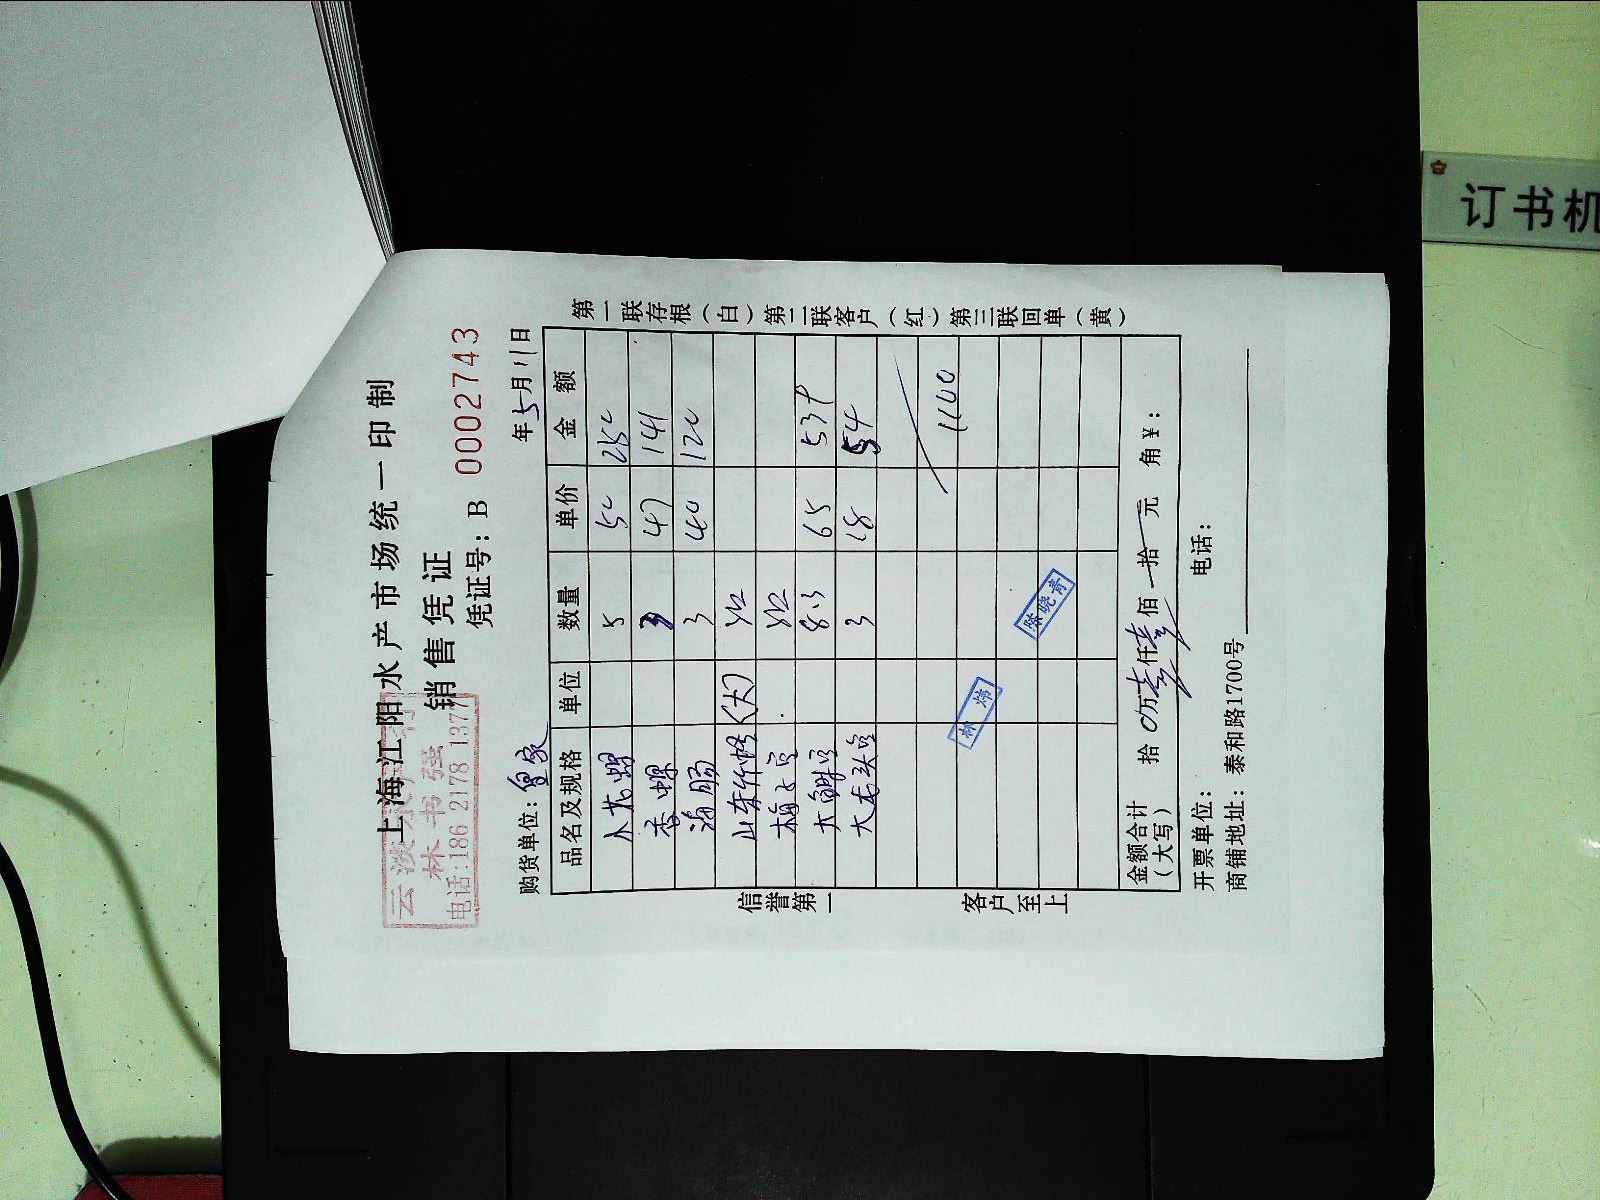 上海江阳水产市场统一印制
销售凭证
凭证号：B 0002743
林书强
电话:186 2178 137
购货单位： 年5月11日
品名及规格 单位 数量 单价 金额
水花螺 5 50 250
香螺 3 47 141
海肠 3 40 120
山东 (大)
大 8.3 65 539
大龙头 3 18 54
1100
林炜
张晓青
金额合计 拾 0万壹仟壹佰 拾 元 角￥：
(大写)
开票单位： 电话：
商铺地址：泰和路1700号
信誉第一 客户至上
第一联存根(白) 第二联客户(红) 第三联回单(黄)
订书机